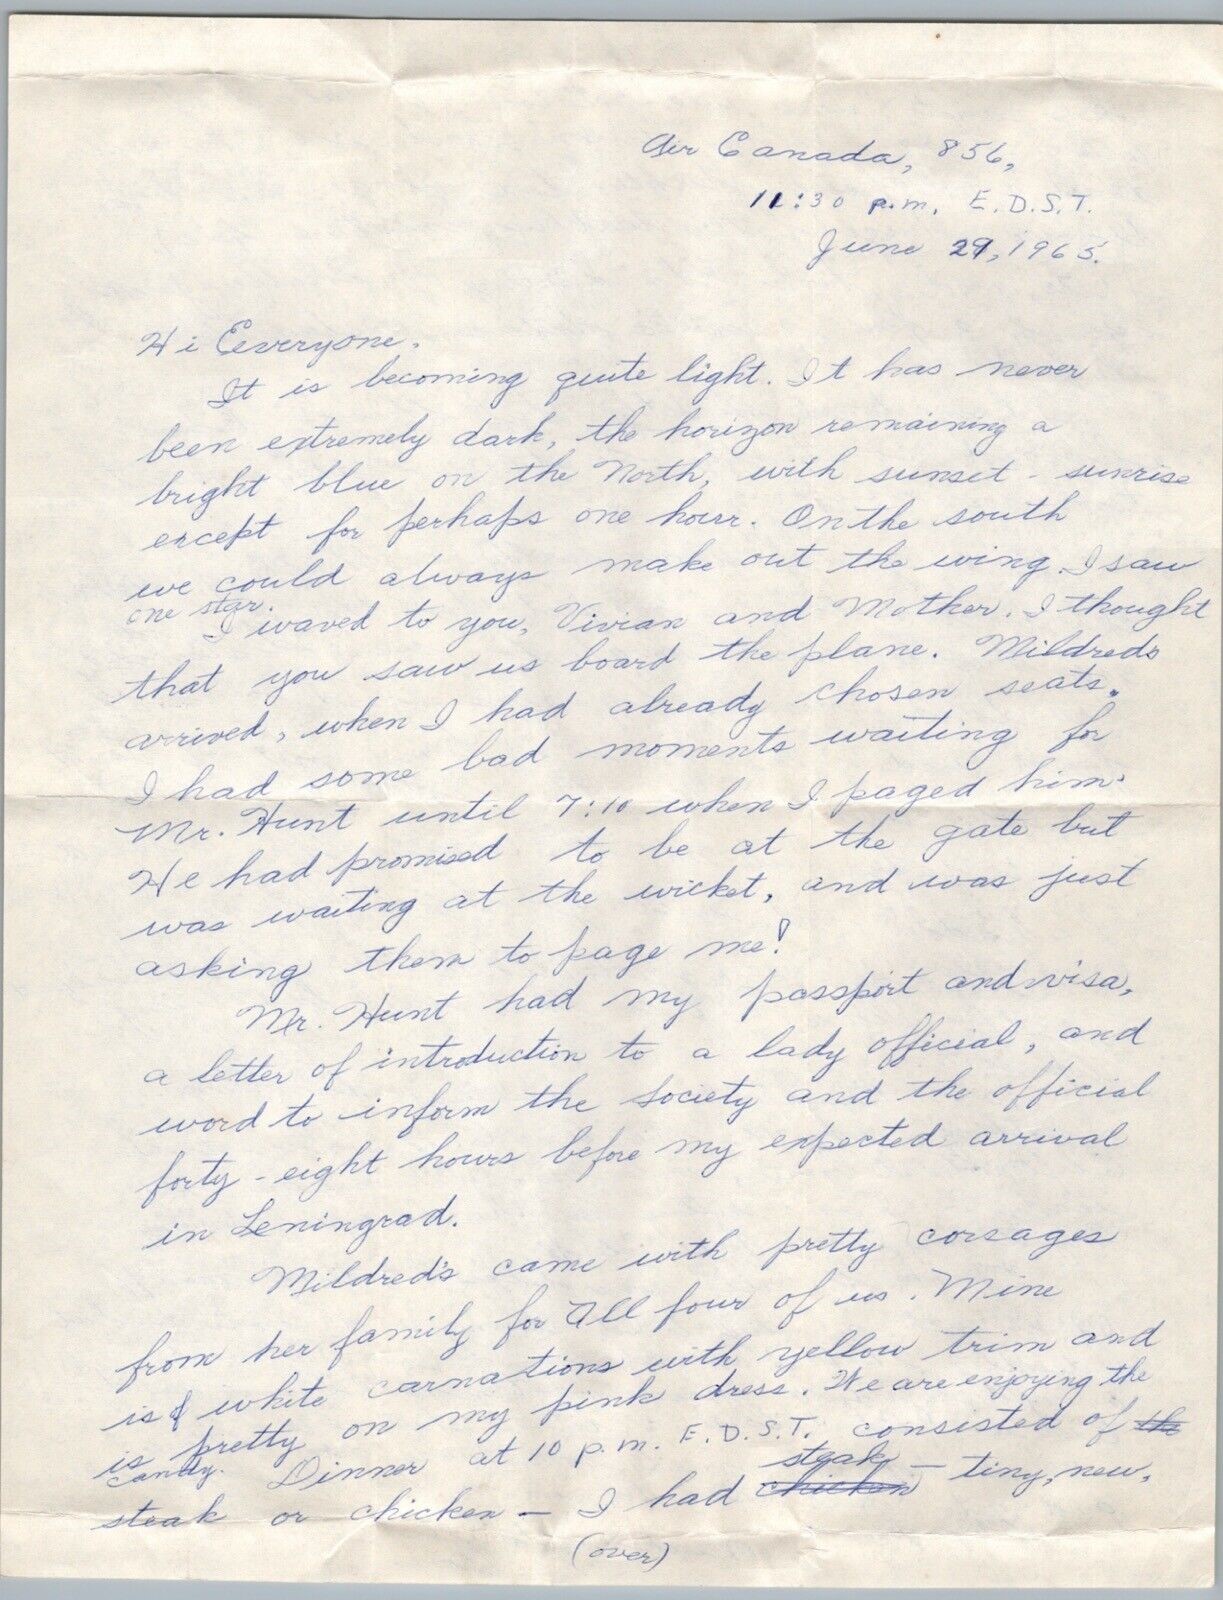 Air Canada, 856,
11:30 p.m. E.D.S.T.
June 29, 1965.
Hi Eeveryone.
It is becoming quite light. It has never
been extremely dark, the horizon remaining a
bright blue on the North, with sunset - sunrise
except for perhaps one hour. On the south
we could always make out the wing. I saw
one star.
I waved to you, Vivian and Mother. I thought
that you saw us board the plane. Mildreds
arrived, when I had already chosen seats.
I had some bad moments waiting for
Mr. Hunt until 7:10 when I paged him.
He had promised to be at the gate but
was waiting at the wicket, and was just
asking them to page me!
Mr. Hunt had my passport and visa,
a letter of introduction to a lady official, and
word to inform the society and the official
forty-eight hours before my expected arrival
in Leningrad.
Mildred's came with pretty corsages
from her family for all four of us. Mine
is of white carnations with yellow trim and
is pretty on my pink dress. We are enjoying the
candy. Dinner at 10 p.m. E.D.S.T. consisted of the
steak
steak or chicken – I had chicken – tiny, new,
(over)